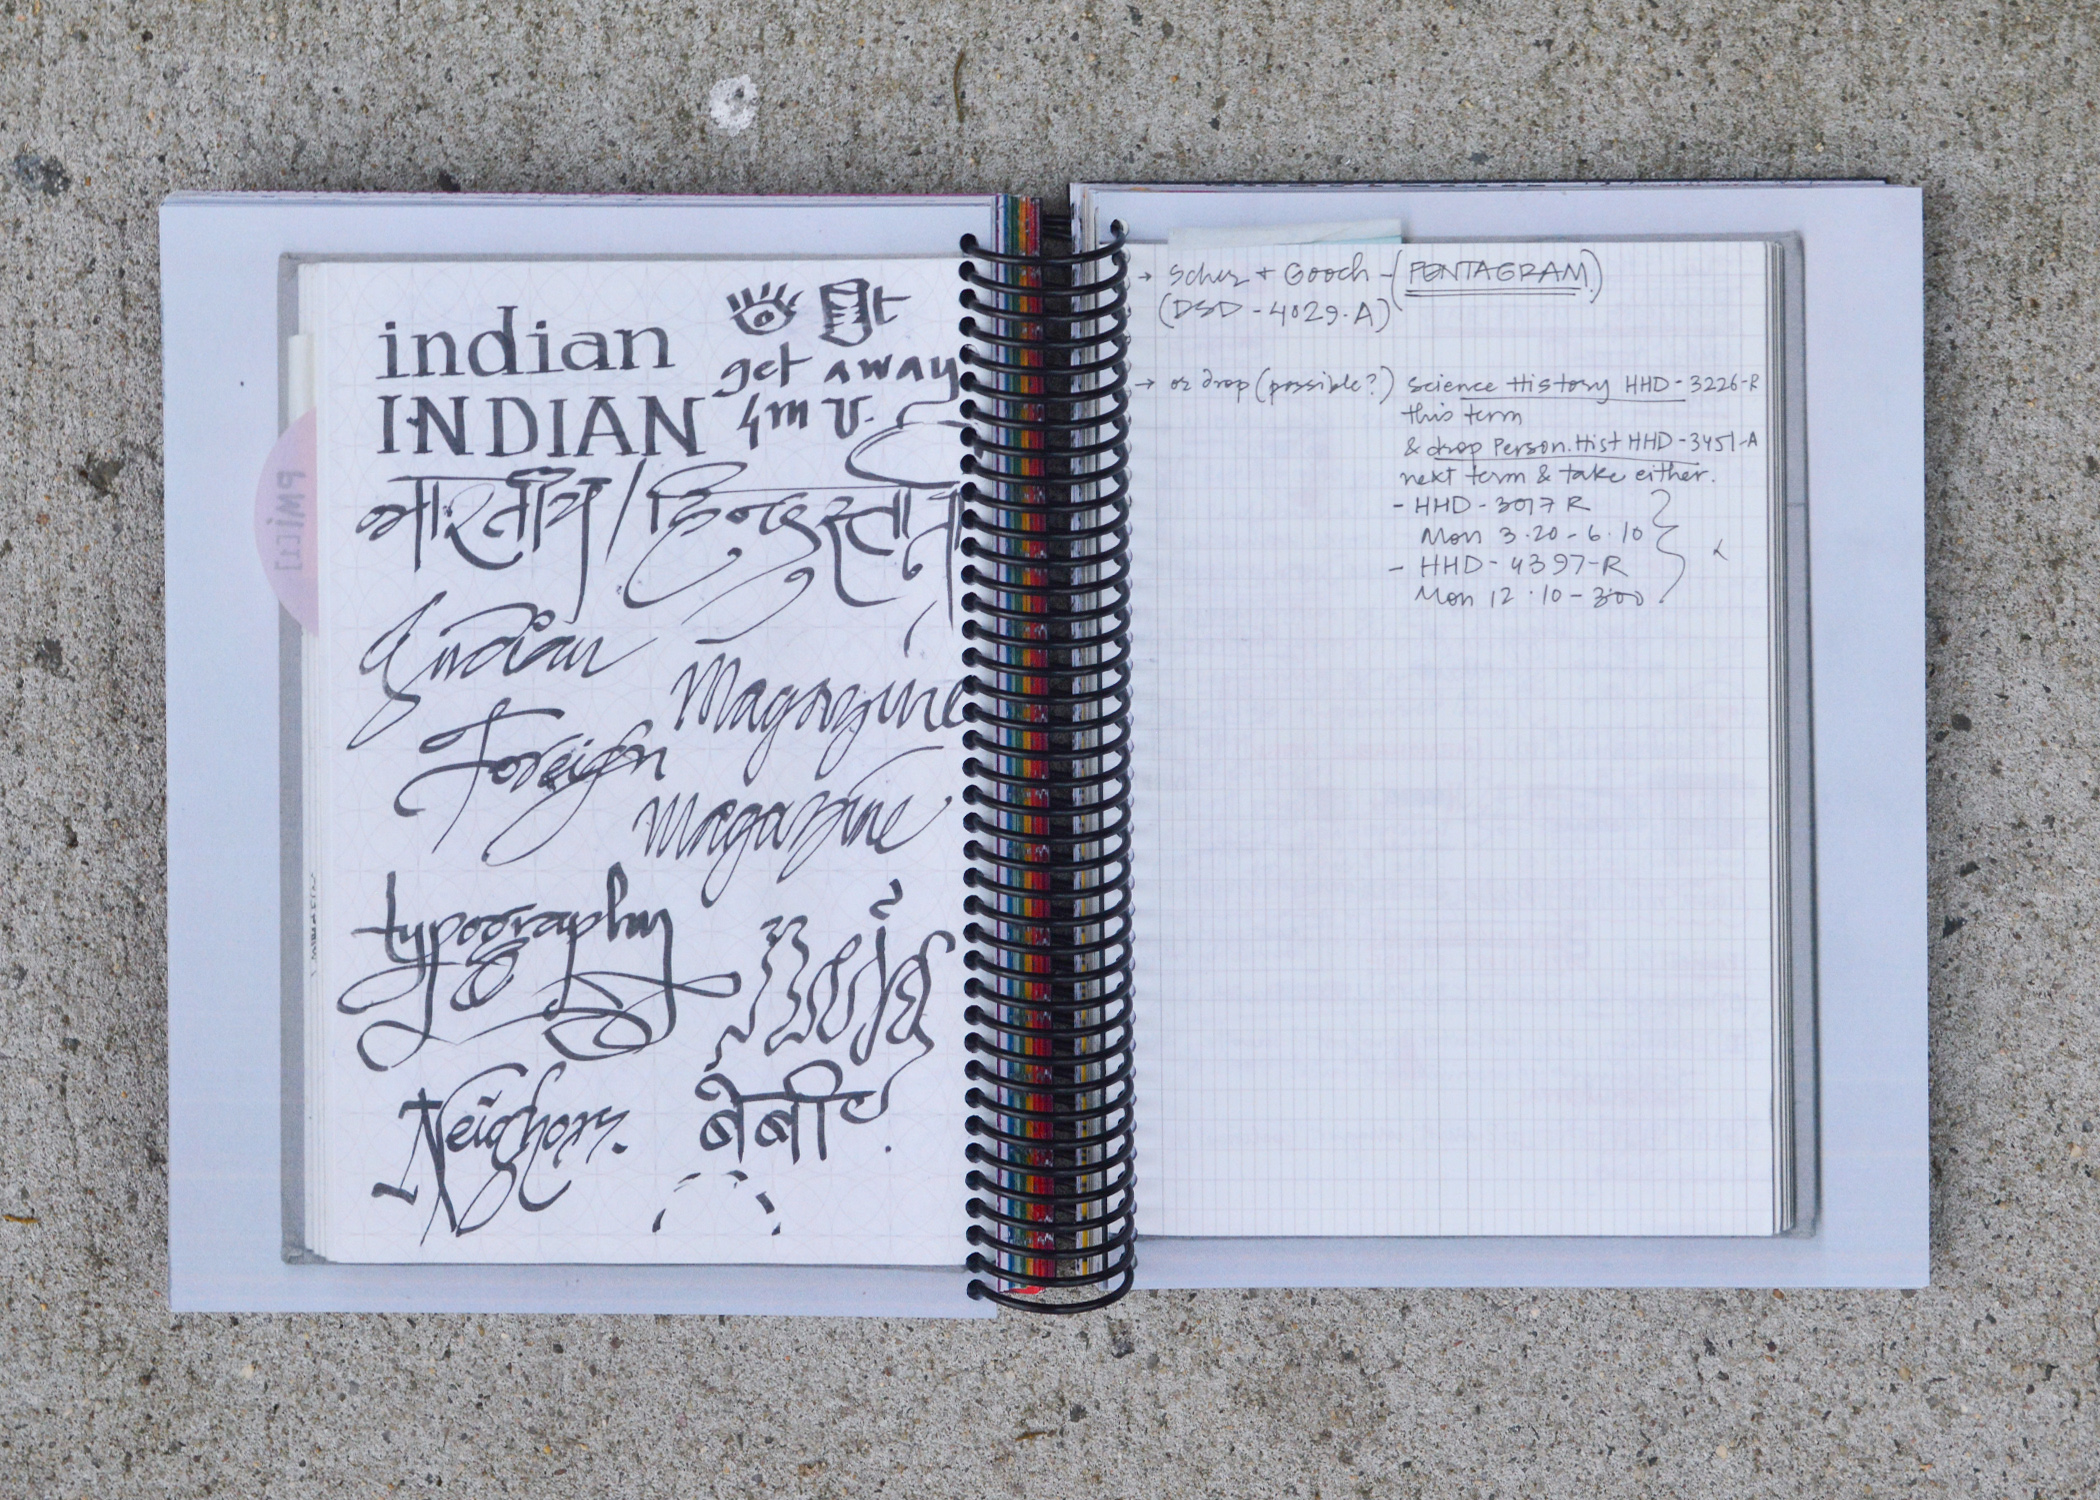 indian
get away
INDIAN 4m U.
भारतीय / हिन्दुस्तानी
indian
Magazine
Foreign
Magazine
typography
Neighors.
बेबी
PMi[1]
→ Scher + Gooch - (PENTAGRAM)
(DSD - 4029-A)
→ or drop (possible?) Science History HHD - 3226-R
this term
& drop Person. Hist HHD - 3451-A
next term & take either.
- HHD - 3017 R
Mon 3.20 - 6.10
- HHD - 4397-R
Mon 12.10 - 300